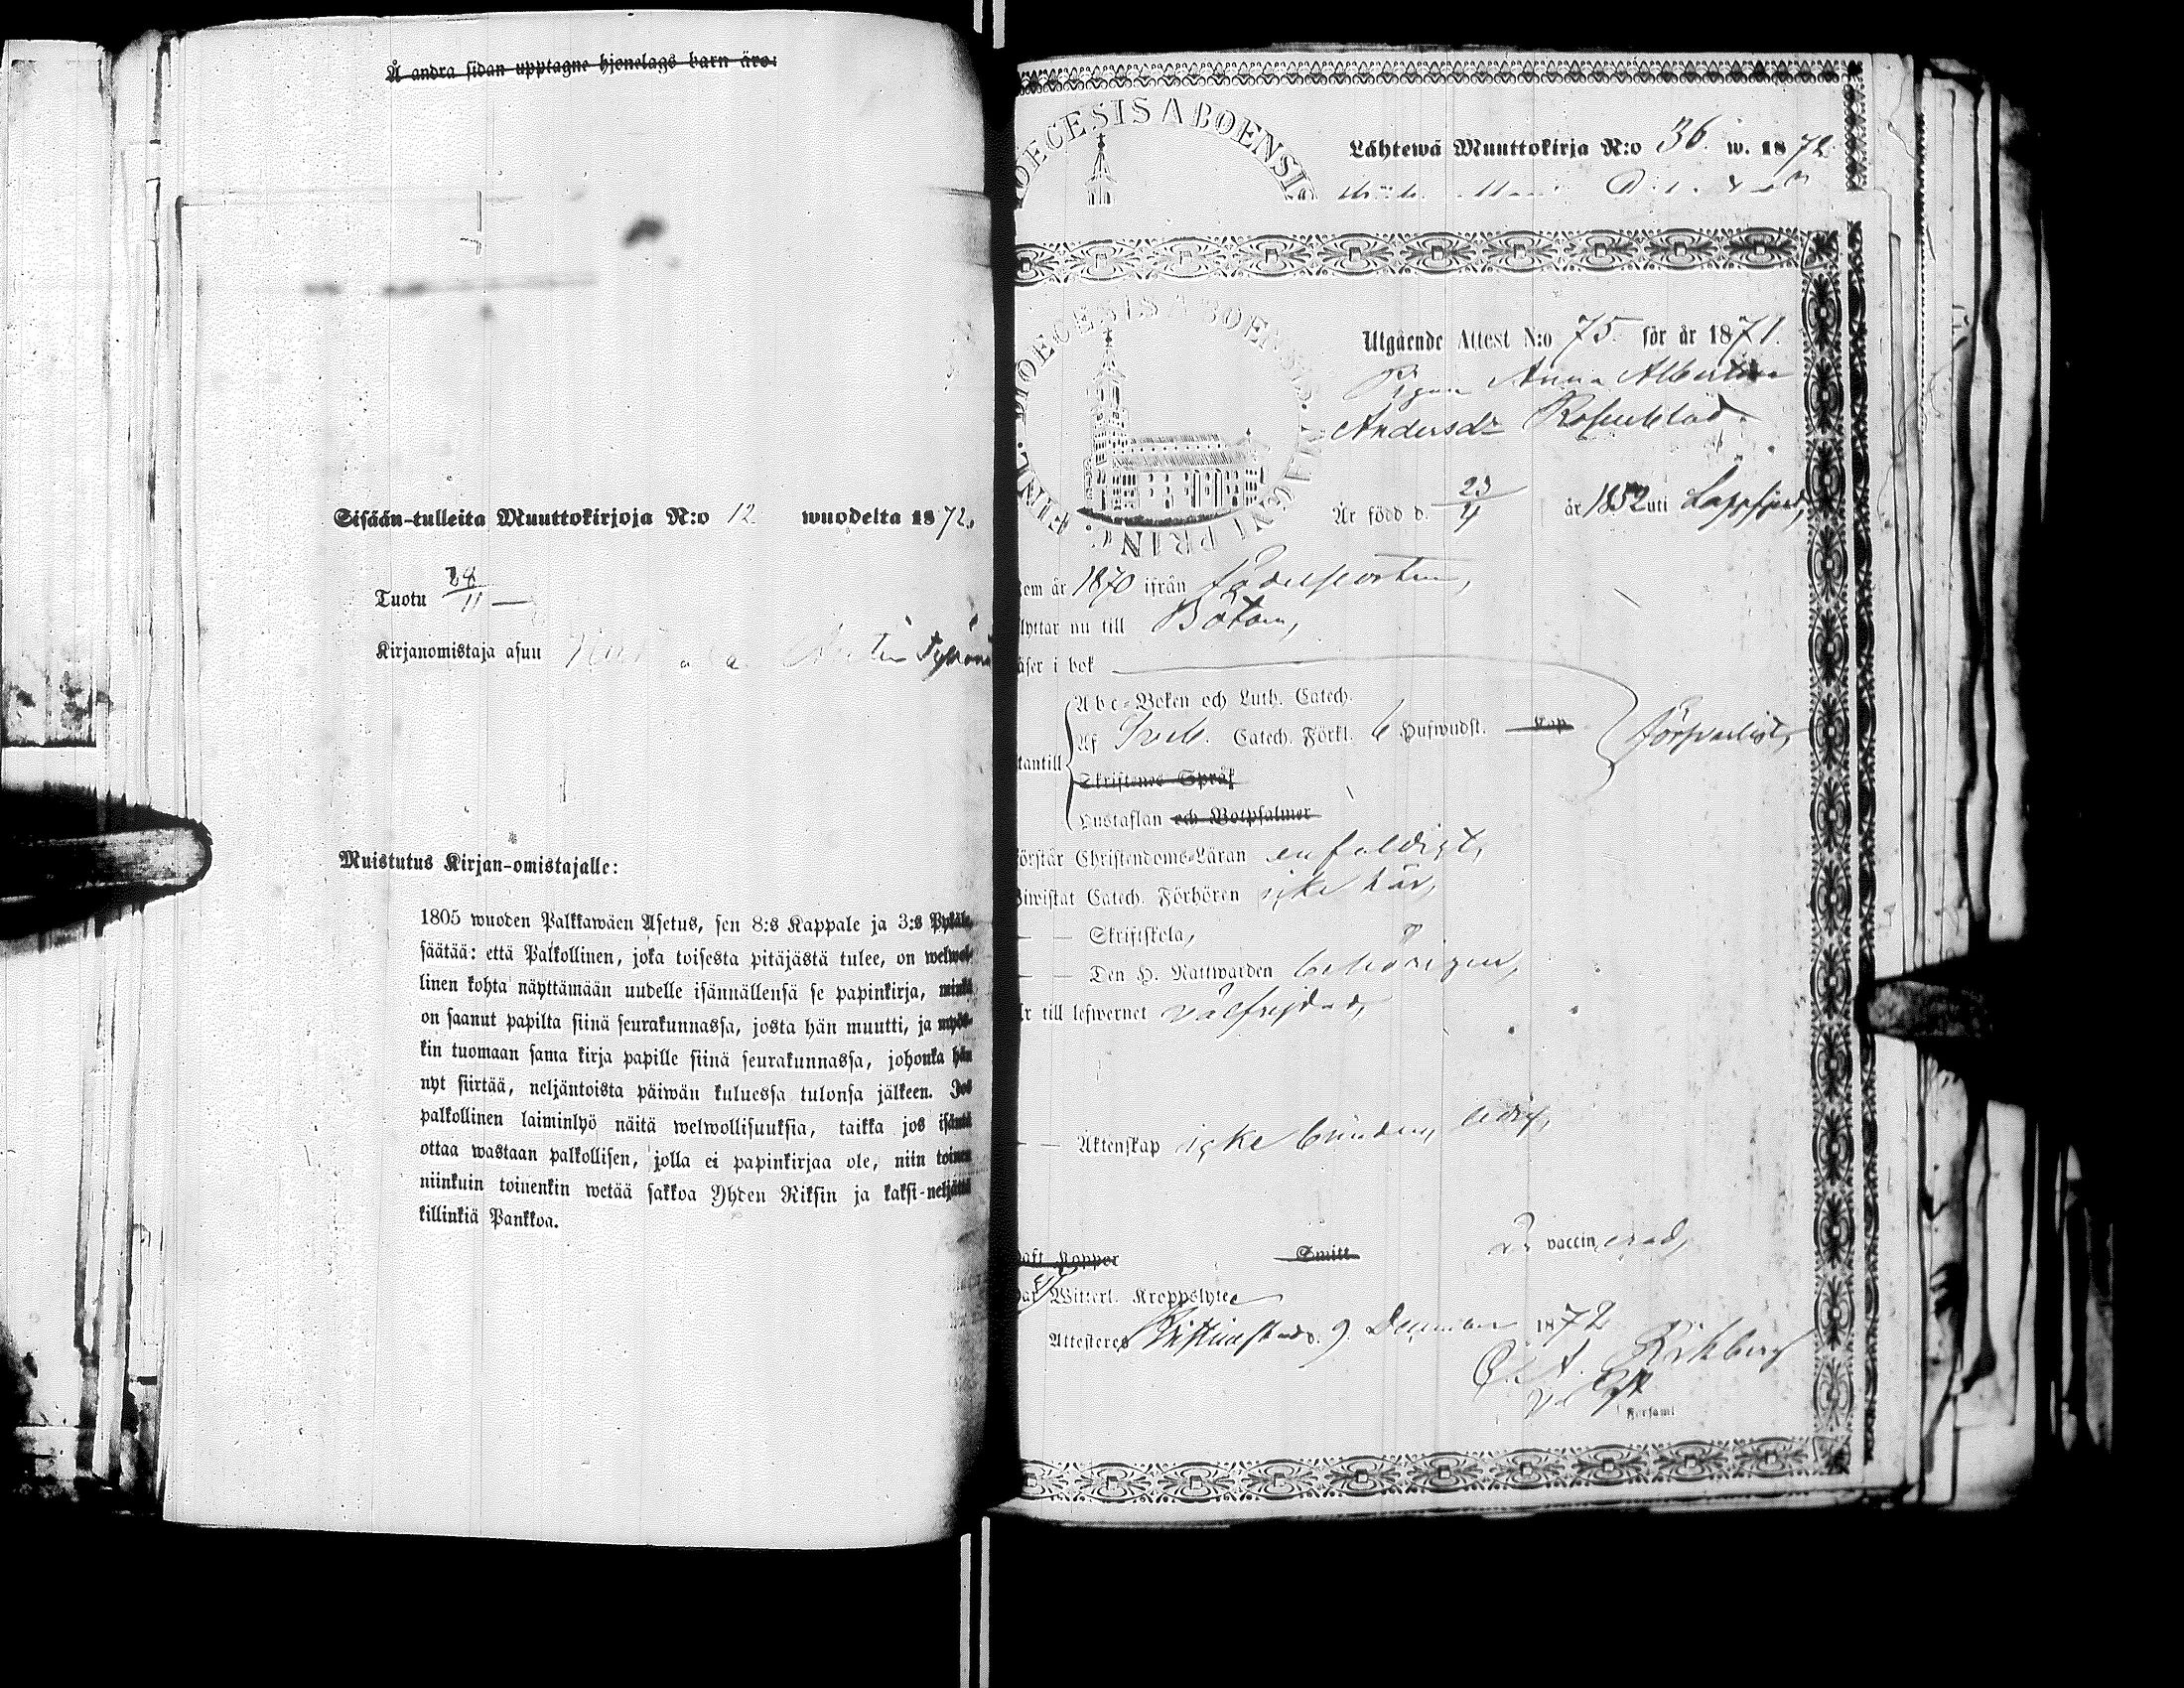 Å andra sidan upptagne hjonelags barn äro:
Sisään-tulleita Muuttokirjoja N:o 12 wuodelta 1872.
Tuotu 28/11
Kirjanomistaja asuu
Muistutus Kirjan-omistajalle:
1805 wuoden Palkkawäen Asetus, sen 8:s Kappale ja 3:s Pykälä,
säätää: että Palkollinen, joka toisesta pitäjästä tulee, on welwol-
linen kohta näyttämään uudelle isännällensä se papinkirja, minkä
on saanut papilta siinä seurakunnassa, josta hän muutti, ja myös-
kin tuomaan sama kirja papille siinä seurakunnassa, johonka hän
nyt siirtää, neljäntoista päiwän kuluessa tulonsa jälkeen. Jos
palkollinen laiminlyö näitä welwollisuuksia, taikka jos isäntä
ottaa wastaan palkollisen, jolla ei papinkirjaa ole, niin toinen
niinkuin toinenkin wetää sakkoa Yhden Riksin ja kaksi-neljättä
killinkiä Pankkoa.
DIOECESIS ABOENSIS
Lähtewä Muuttokirja N:o 36. w. 1872
FINL. DIOECESIS ABOENSIS. PRINC.
Utgående Attest N:o 75 för år 1871.
Pigan Anna Albertina
Andersdr Rosenblad
Är född d. 23/4 år 1852 uti Lappfjerd,
kom år 1870 ifrån
flyttar nu till Bötom,
läser i bok
Abc-Boken och Luth. Catech.
Af Sveb. Catech. Förkl. 6 Hufwudst. Kap
utantill
försvarligt,
Skriftenes Språk
Hustaflan och Botpsalmer
förstår Christendoms-Läran enfaldigt,
Biwistat Catech. Förhören icke här,
— — Skriftskola,
— — Den H. Nattwarden behörigen,
Är till lefwernet välfrejdad,
— — Äktenskap icke bunden, ledig,
Haft Koppor Smitt Är vaccinerad,
Har ej Witterl. Kroppslyte
Attesteres Kristinestad d. 9. December 1872
Forsaml